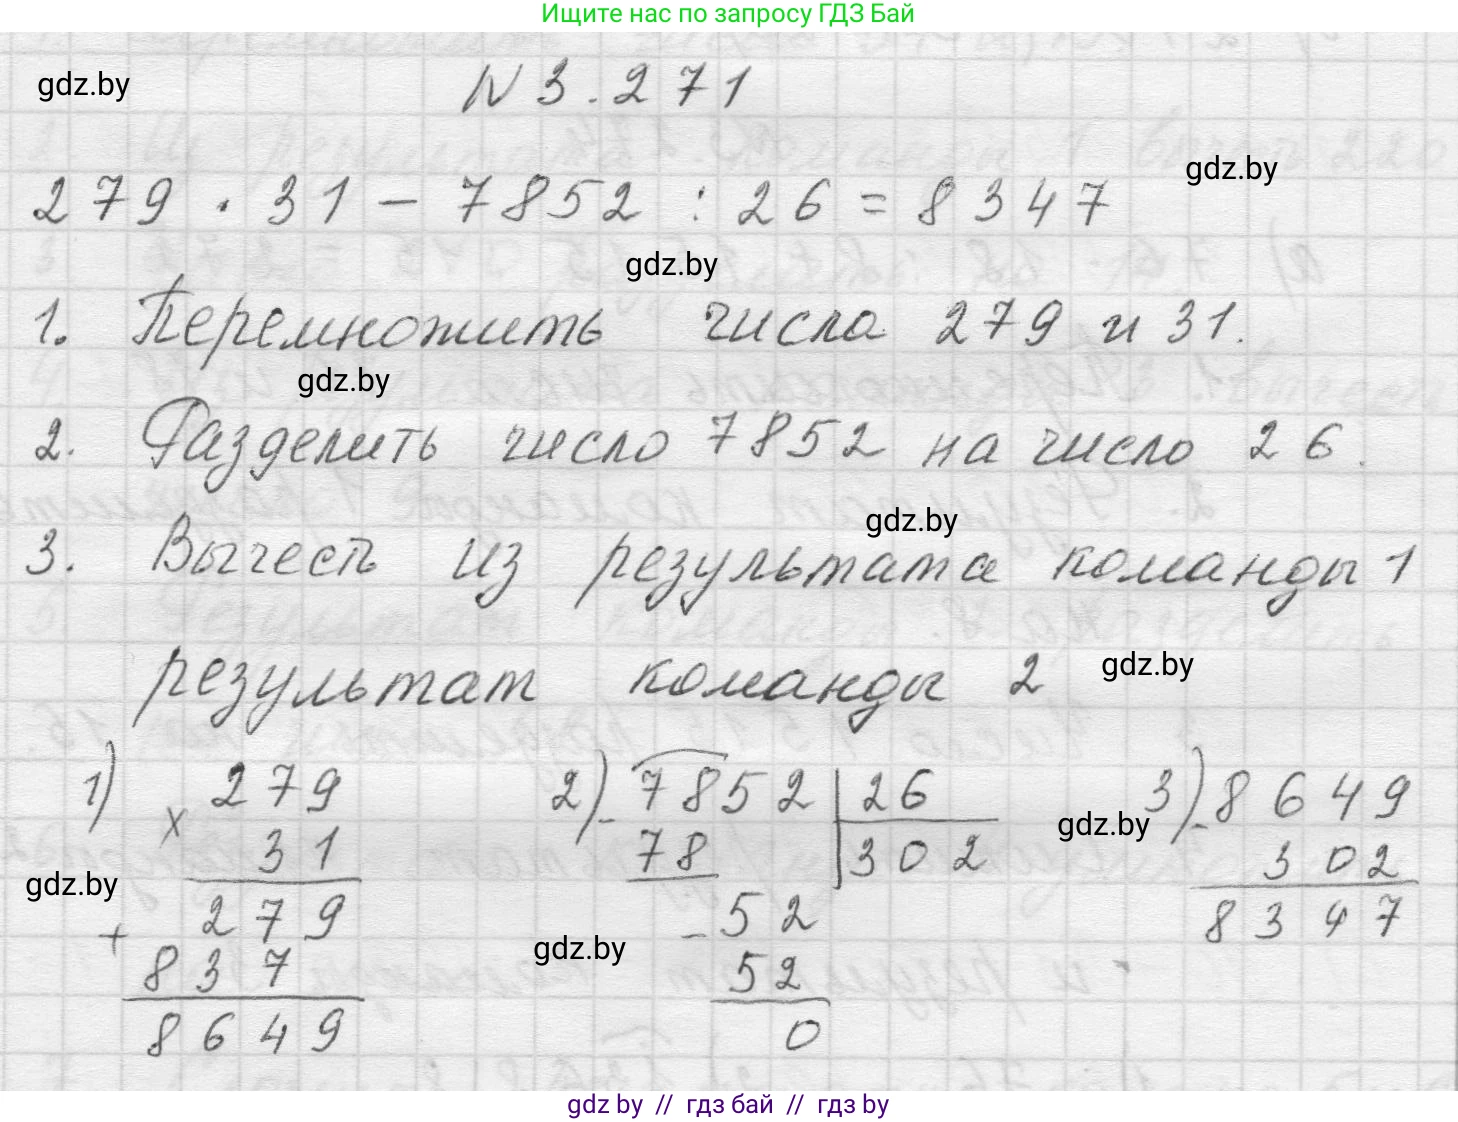 Ищите нас по запросу ГДЗ Бай
gdz.by
N 3.271
gdz.by
279 · 31 − 7852 : 26 = 8347
gdz.by
1. Перемножить числа 279 и 31.
gdz.by
2. Разделить число 7852 на число 26.
gdz.by
3. Вычесть из результата команды 1
результат команды 2
gdz.by
1) 279
× 31
279
+ 837
8649
gdz.by
2) − 7852 | 26
78 302
− 52
52
0
gdz.by
gdz.by
3) − 8649
302
8347
gdz by // гдз бай // гдз by